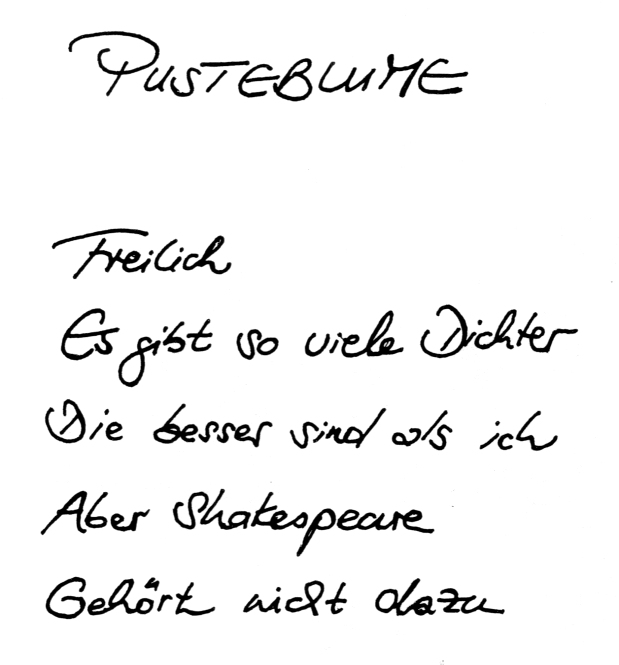 PUSTEBLUME
Freilich
Es gibt so viele Dichter
Die besser sind als ich
Aber Shakespeare
Gehört nicht dazu